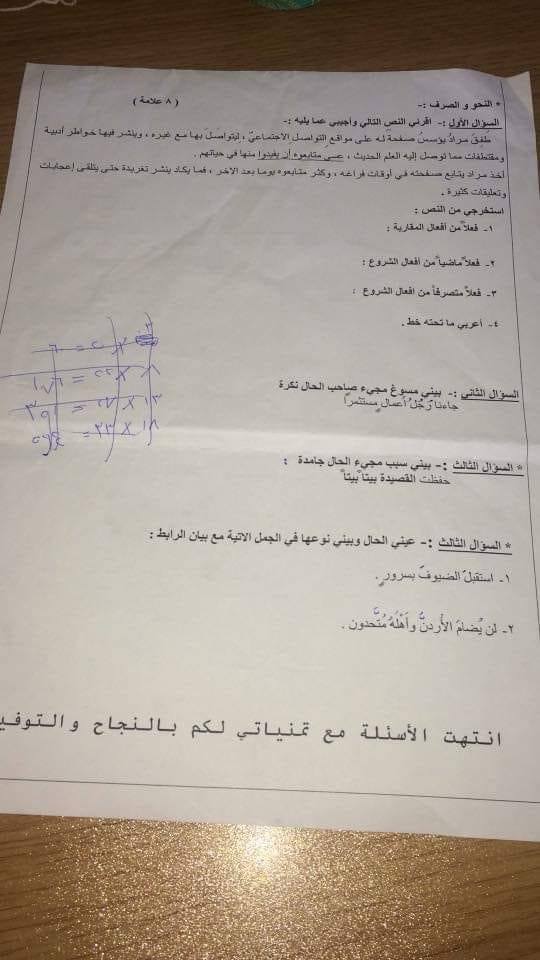 * النحو و الصرف :- ( ٨ علامة )
السؤال الأول :- اقرئي النص التالي وأجيبي عما يليه :-
طفق مراد يؤسس صفحة له على مواقع التواصل الاجتماعي ، ليتواصل بها مع غيره ، وينشر فيها خواطر أدبية
ومقتطفات مما توصل إليه العلم الحديث ، عسى متابعوه أن يفيدوا منها في حياتهم .
أخذ مراد يتابع صفحته في أوقات فراغه ، وكثر متابعوه يوما بعد الاخر ، فما يكاد ينشر تغريدة حتى يتلقى إعجابات
وتعليقات كثيرة .
استخرجي من النص :
١- فعلاً من أفعال المقاربة :
٢- فعلاً ماضياً من أفعال الشروع :
٣- فعلاً متصرفاً من افعال الشروع :
٤- أعربي ما تحته خط .
السؤال الثاني :- بيني مسوغ مجيء صاحب الحال نكرة
جاءنا رَجُلُ أعمالٍ مستثمراً
* السؤال الثالث :- بيني سبب مجيء الحال جامدة :
حفظت القصيدة بيتاً بيتاً
* السؤال الثالث :- عيني الحال وبيني نوعها في الجمل الاتية مع بيان الرابط :
١- استقبل الضيوف بسرور .
٢- لن يُضامَ الأردنُّ وأهْلُهُ مُتَّحدون .
انتهت الأسئلة مع تمنياتي لكم بالنجاح والتوفي